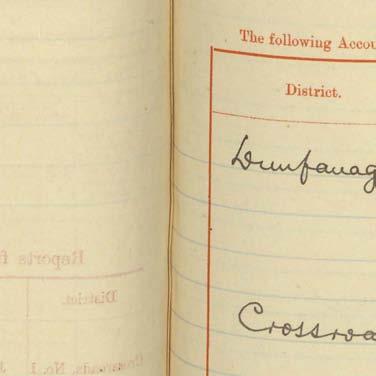 Reports f
District.
The following Accou
District.
Dunfanag
Crossroa